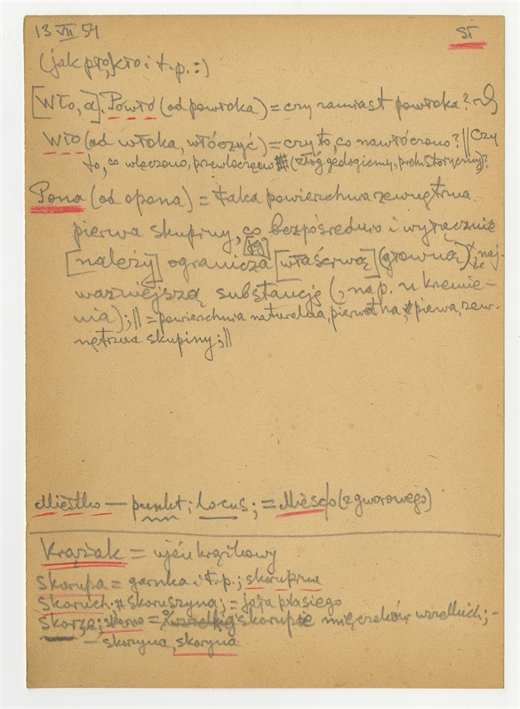 13 VII 54 St
(jak pło, kło i t.p.:)
[Wło,a]. Powło (od powłoka) = czy zamiast powłoka?
Wło (od włoka, włóczyć) = czy to, co nawłóczono? || Czy
to, co włączono, przewleczono (złóg geologiczny, prehistoryczny)?
Pona (od opona) = taka powierzchnia zewnętrzna
pierwa skupiny, co bezpośrednio i wyłącznie
[należy] ogranicza [właściwą] (głowną), naj-
ważniejszą substancję (, nap. u kremie-
nia); || = powierzchnia naturalna, pierwotna, pierwa, zew-
nętrzna skupiny; ||
Miestko — punkt; locus; = Miesco (z gwarowego)
Krążak = ujęń krążkowy
Skorupa = garnka i t.p.; skorupina
Skoruch. skoruszyna; = jaja ptasiego
Skorza; skorno = skorupze mięczaków wszelkich; -
— skorzyna, skoryna